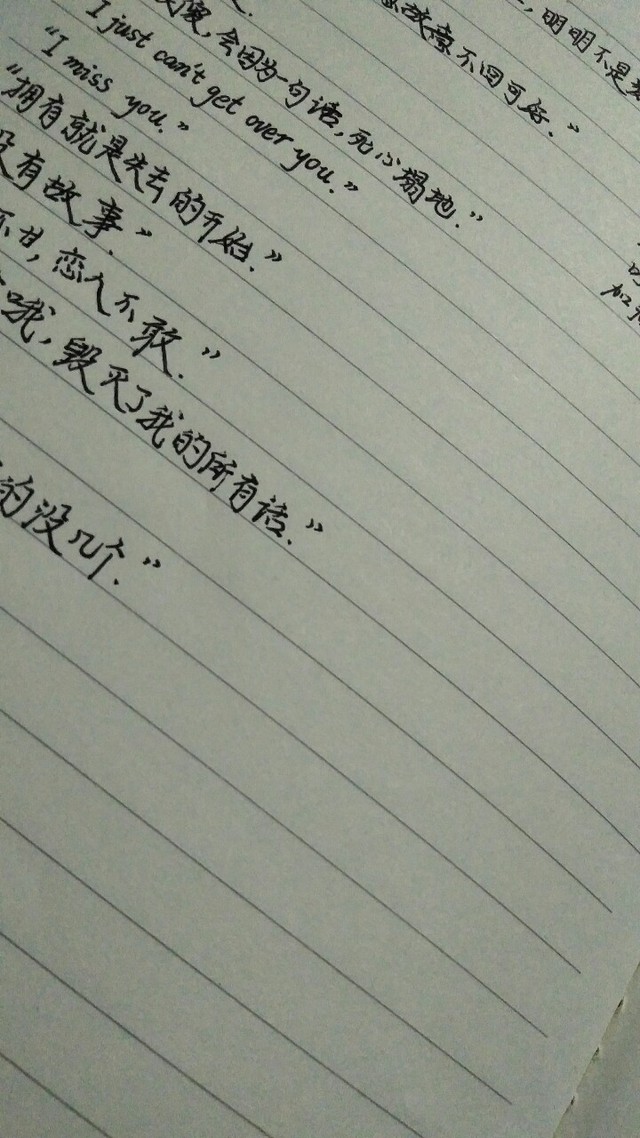 明明不是
故意不回可好."
傻,会因为一句话,死心塌地."
I just can't get over you."
"I miss you."
"拥有就是失去的开始."
没有故事"
不甘,恋人不敢."
哦,毁灭了我的所有话."
的没几个."